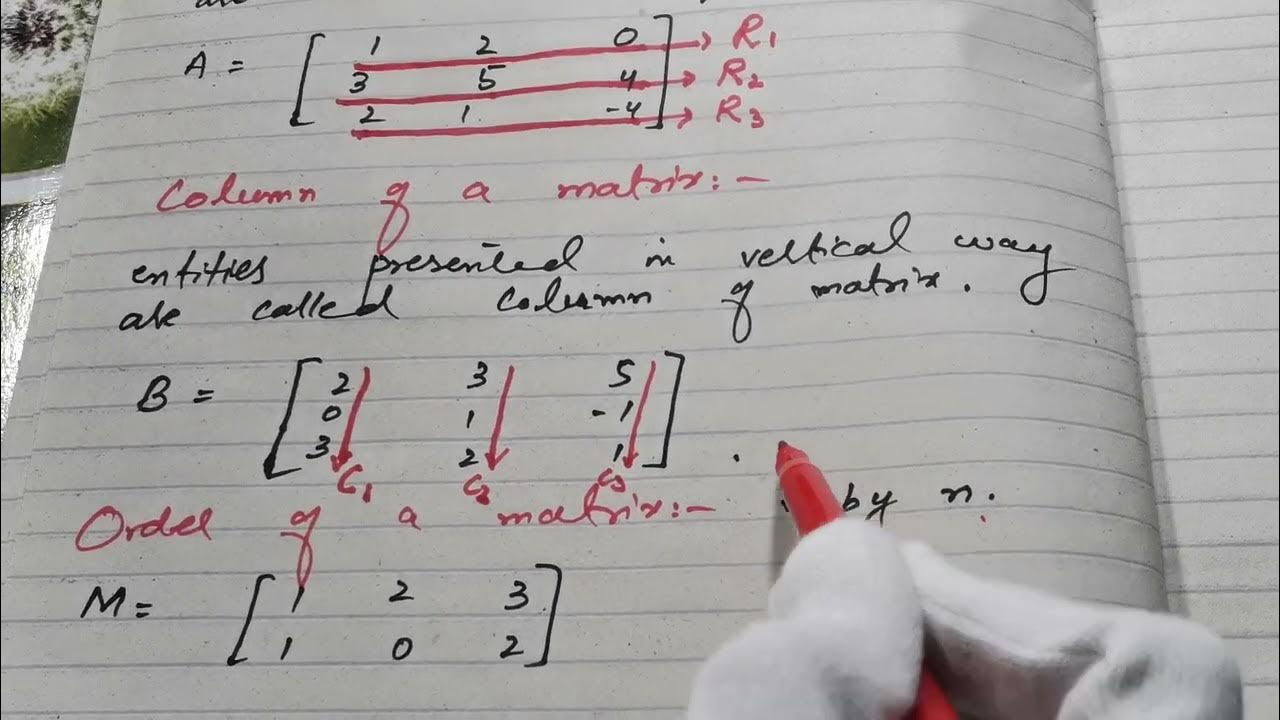 A = [ 1 2 0 ] → R1
3 5 4 → R2
2 1 -4 → R3
Column of a matrix:-
entities presented in vertical way
are called column of matrix.
B = [ 2 3 5 ]
0 1 -1
3 2 1 .
C1 C2 C3
Order of a matrix:- by n.
M= [ 1 2 3 ]
1 0 2